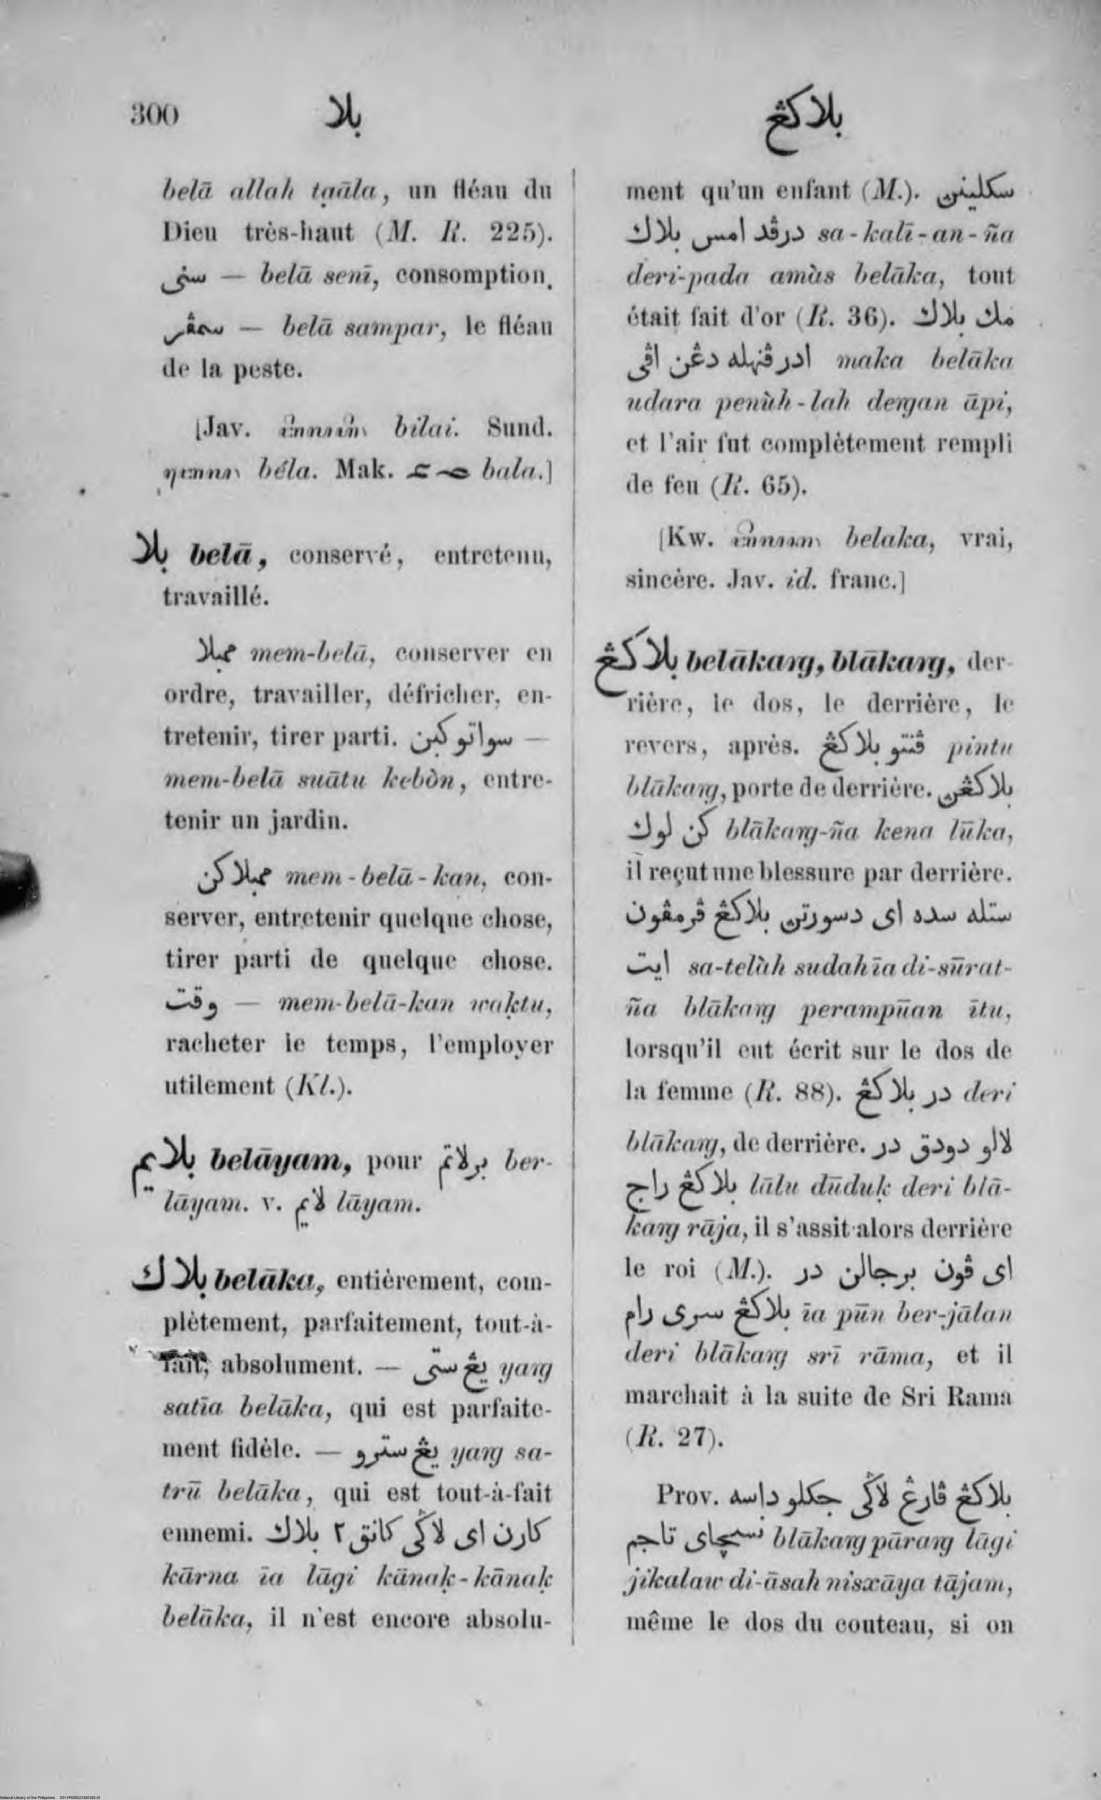 300
بلا
بلاكڠ
belā allah taāla, un fléau du
Dieu très-haut (M. R. 225).
سنى — belā senī, consomption.
سمڤر — belā sampar, le fléau
de la peste.
[Jav. bilai. Sund.
béla. Mak. bala.]
بلا belā, conservé, entretenu,
travaillé.
ممبلا mem-belā, conserver en
ordre, travailler, défricher, en-
tretenir, tirer parti. سواتو كبن —
mem-belā suātu kebòn, entre-
tenir un jardin.
ممبلاكن mem-belā-kan, con-
server, entretenir quelque chose,
tirer parti de quelque chose.
وقت — mem-belā-kan waḳtu,
racheter le temps, l'employer
utilement (Kl.).
بلايم belāyam, pour برلايم ber-
lāyam. v. لايم lāyam.
بلاك belāka, entièrement, com-
plètement, parfaitement, tout-à-
fait, absolument. — يڠ ستى yaŋ
satīa belāka, qui est parfaite-
ment fidèle. — يڠ سترو yaŋ sa-
trū belāka, qui est tout-à-fait
ennemi. كارن اى لاڬى كانق٢ بلاك
kārna īa lāgi kānaḳ-kānaḳ
belāka, il n'est encore absolu-
ment qu'un enfant (M.). سكلينن
درڤد امس بلاك sa-kalī-an-ña
deri-pada amàs belāka, tout
était fait d'or (R. 36). مك بلاك
ادر ڤنهله دڠن اڤى maka belāka
udara penùh-lah deŋan āpi,
et l'air fut complètement rempli
de feu (R. 65).
[Kw. belaka, vrai,
sincère. Jav. id. franc.]
بلاكڠ belākaŋ, blākaŋ, der-
rière, le dos, le derrière, le
revers, après. ڤنتو بلاكڠ pintu
blākaŋ, porte de derrière. بلاكڠن
كن لوك blākaŋ-ña kena lūka,
il reçut une blessure par derrière.
ستله سده اى دسورتن بلاكڠ ڤرمڤون
ايت sa-telàh sudah īa di-sūrat-
ña blākaŋ perampūan ītu,
lorsqu'il eut écrit sur le dos de
la femme (R. 88). در بلاكڠ deri
blākaŋ, de derrière. لالو دودق در
بلاكڠ راج lālu dūduḳ deri blā-
kaŋ rāja, il s'assit alors derrière
le roi (M.). اى ڤون برجالن در
بلاكڠ سرى رام īa pūn ber-jālan
deri blākaŋ srī rāma, et il
marchait à la suite de Sri Rama
(R. 27).
Prov. بلاكڠ ڤارڠ لاڬى جكلو داسه
نسچاى تاجم blākaŋ pāraŋ lāgi
jikalaw di-āsah nisxāya tājam,
même le dos du couteau, si on